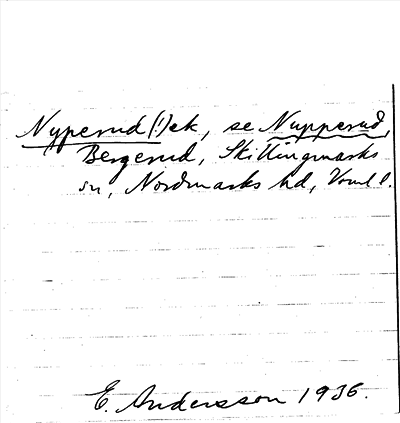 Nyperud(!)ek, se Nupperud,
Bergerud, Skillingmarks
sn, Nordmarks hd, Vrml l.
E. Andersson 1936.